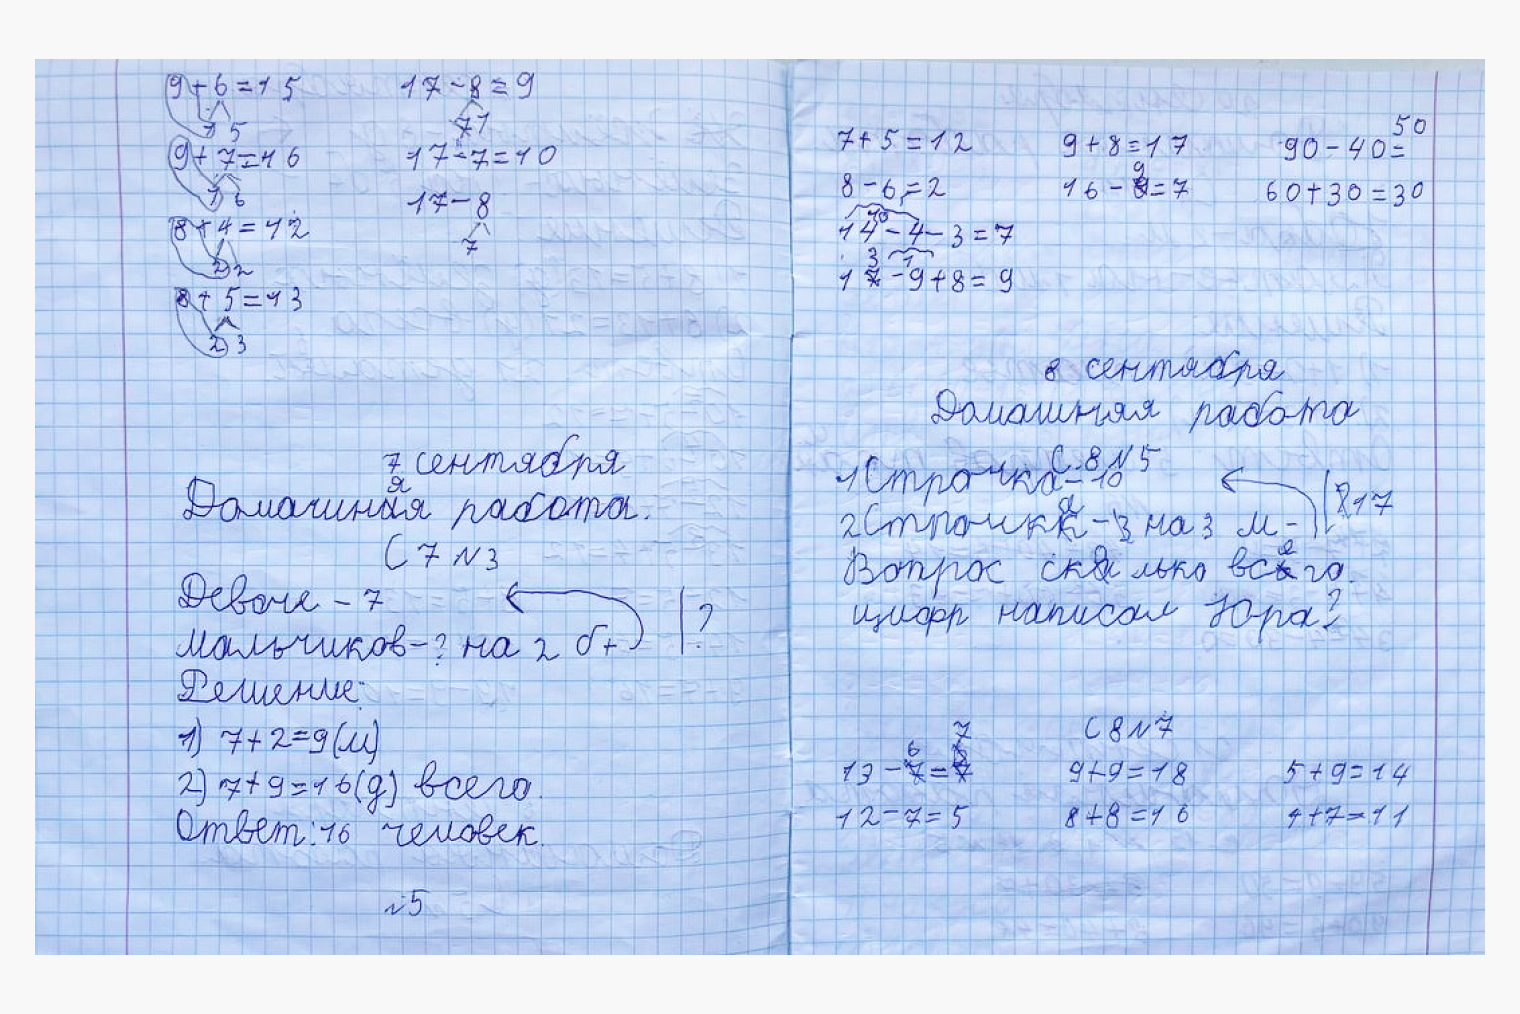 9+6=15 17-8=9
1 5 7 1
9+7=16 17-7=10
1 6 17-8
8+4=12 7
2 2
8+5=13
2 3
7 сентября
Домашняя работа.
С 7 №3
Девоче - 7
Мальчиков-? на 2 б+ ?
Решение:
1) 7+2=9(м)
2) 7+9=16(д) всего.
Ответ: 16 человек.
№5
7+5=12 9+8=17 90-40=50
8-6=2 16-9=7 60+30=30
10
14-4-3=7
3 1
17-9+8=9
8 сентября
Домашняя работа
С.8 №5
1Строчка-10
2Строчка-? на 3 м- ?17
Вопрос сколько всего.
цифр написал Юра?
С 8 №7
13-6=7 9+9=18 5+9=14
12-7=5 8+8=16 4+7=11